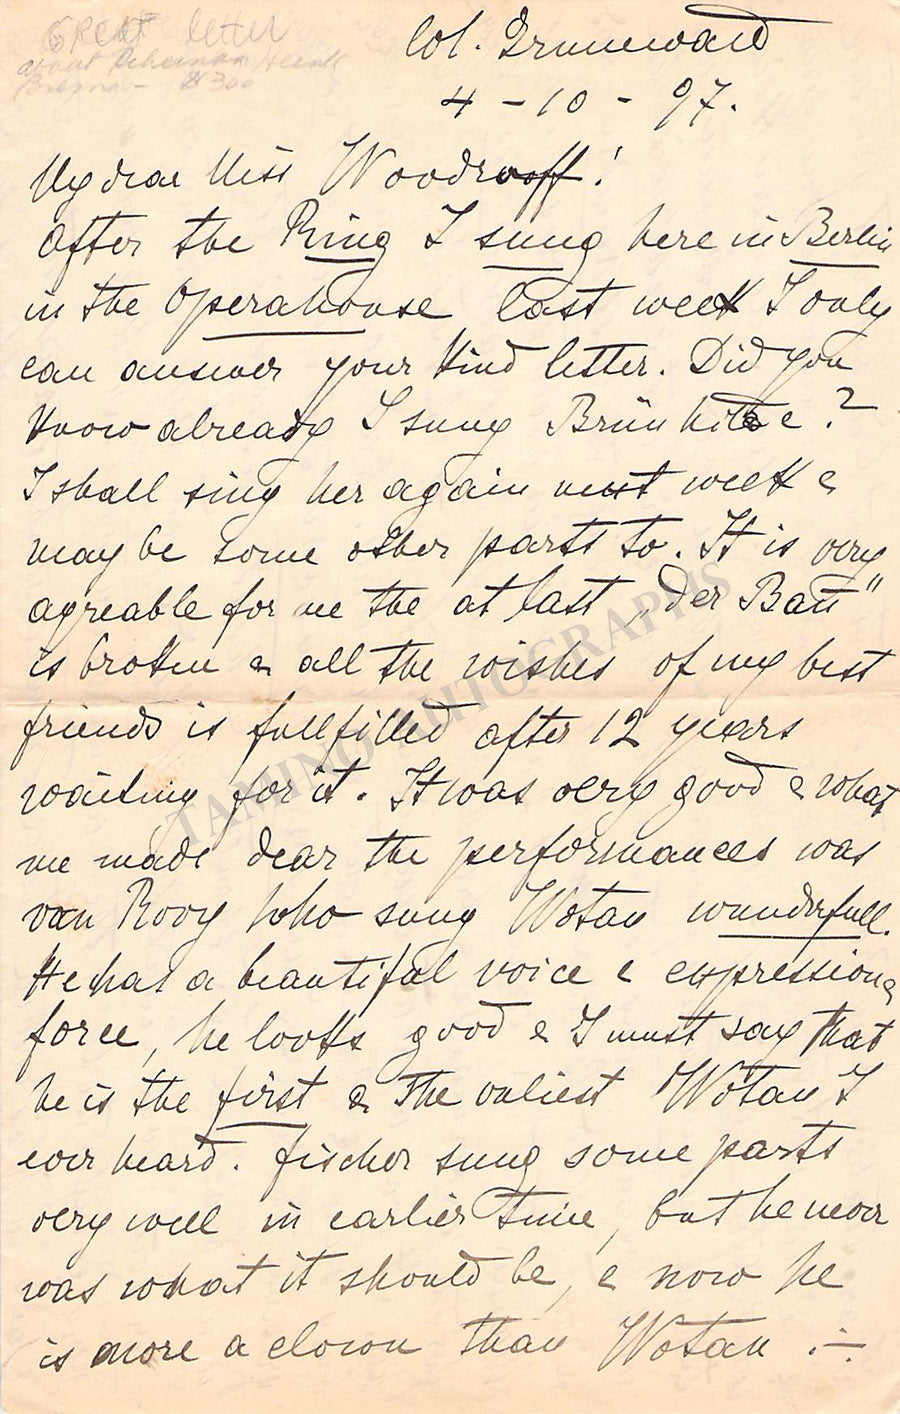 GREAT letter
about Schumann Heink
$300
Col. Grunewald
4 - 10 - 97.
My dear Miss Woodrooff!
After the Ring I sung here in Berlin
in the Operahouse last week I only
can answer your kind letter. Did you
know already I sung Brünhilde?
I shall sing her again next week &
may be some other parts to. It is very
agreable for me the at last „der Bann"
is broken & all the wishes of my best
friends is fullfilled after 12 years
waiting for it. It was very good & what
me made dear the performances was
van Rooy who sung Wotan wunderfull.
He has a beautiful voice & expression &
force, he looks good & I must say that
he is the first & the onliest Wotan I
ever heard. Fischer sung some parts
very well in earlier time, but he never
was what it should be, & now he
is more a clown than Wotan .—
TAMINO AUTOGRAPHS